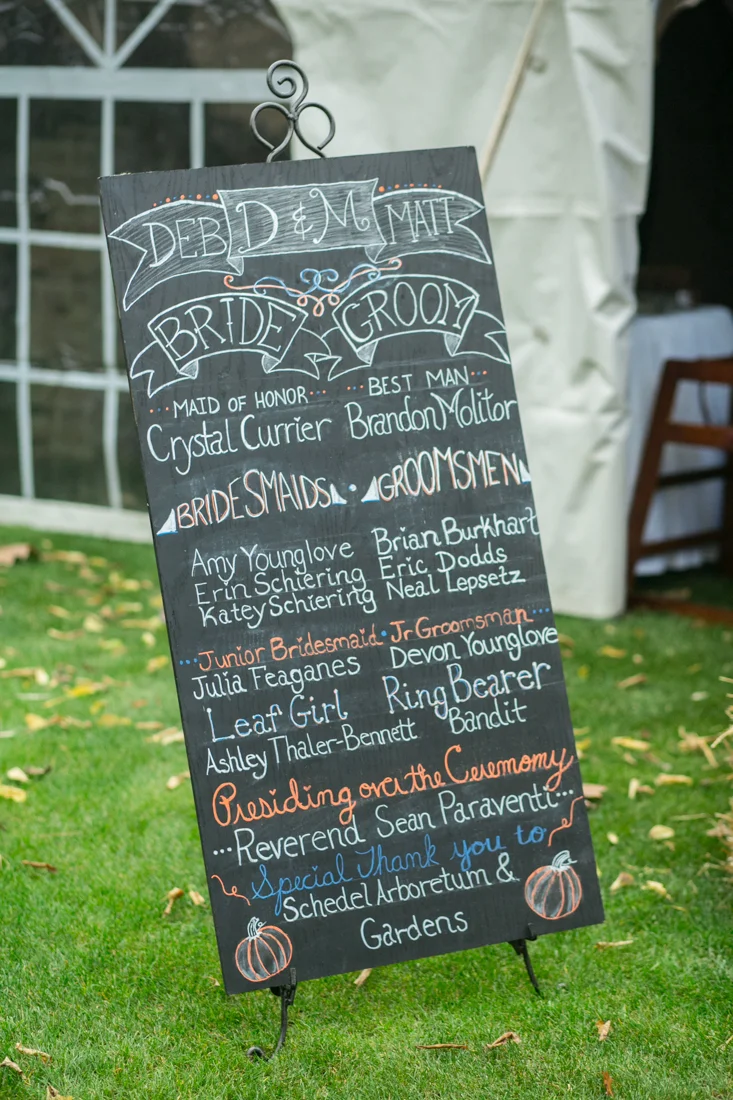 DEB D & M MATT
BRIDE GROOM
MAID OF HONOR BEST MAN
Crystal Currier Brandon Molitor
BRIDESMAIDS GROOMSMEN
Amy Younglove Brian Burkhart
Erin Schiering Eric Dodds
Katey Schiering Neal Lepsetz
Junior Bridesmaid Jr Groomsman
Julia Feaganes Devon Younglove
Leaf Girl Ring Bearer
Ashley Thaler-Bennett Bandit
Presiding over the Ceremony
...Reverend Sean Paraventi...
Special Thank you to
Schedel Arboretum &
Gardens